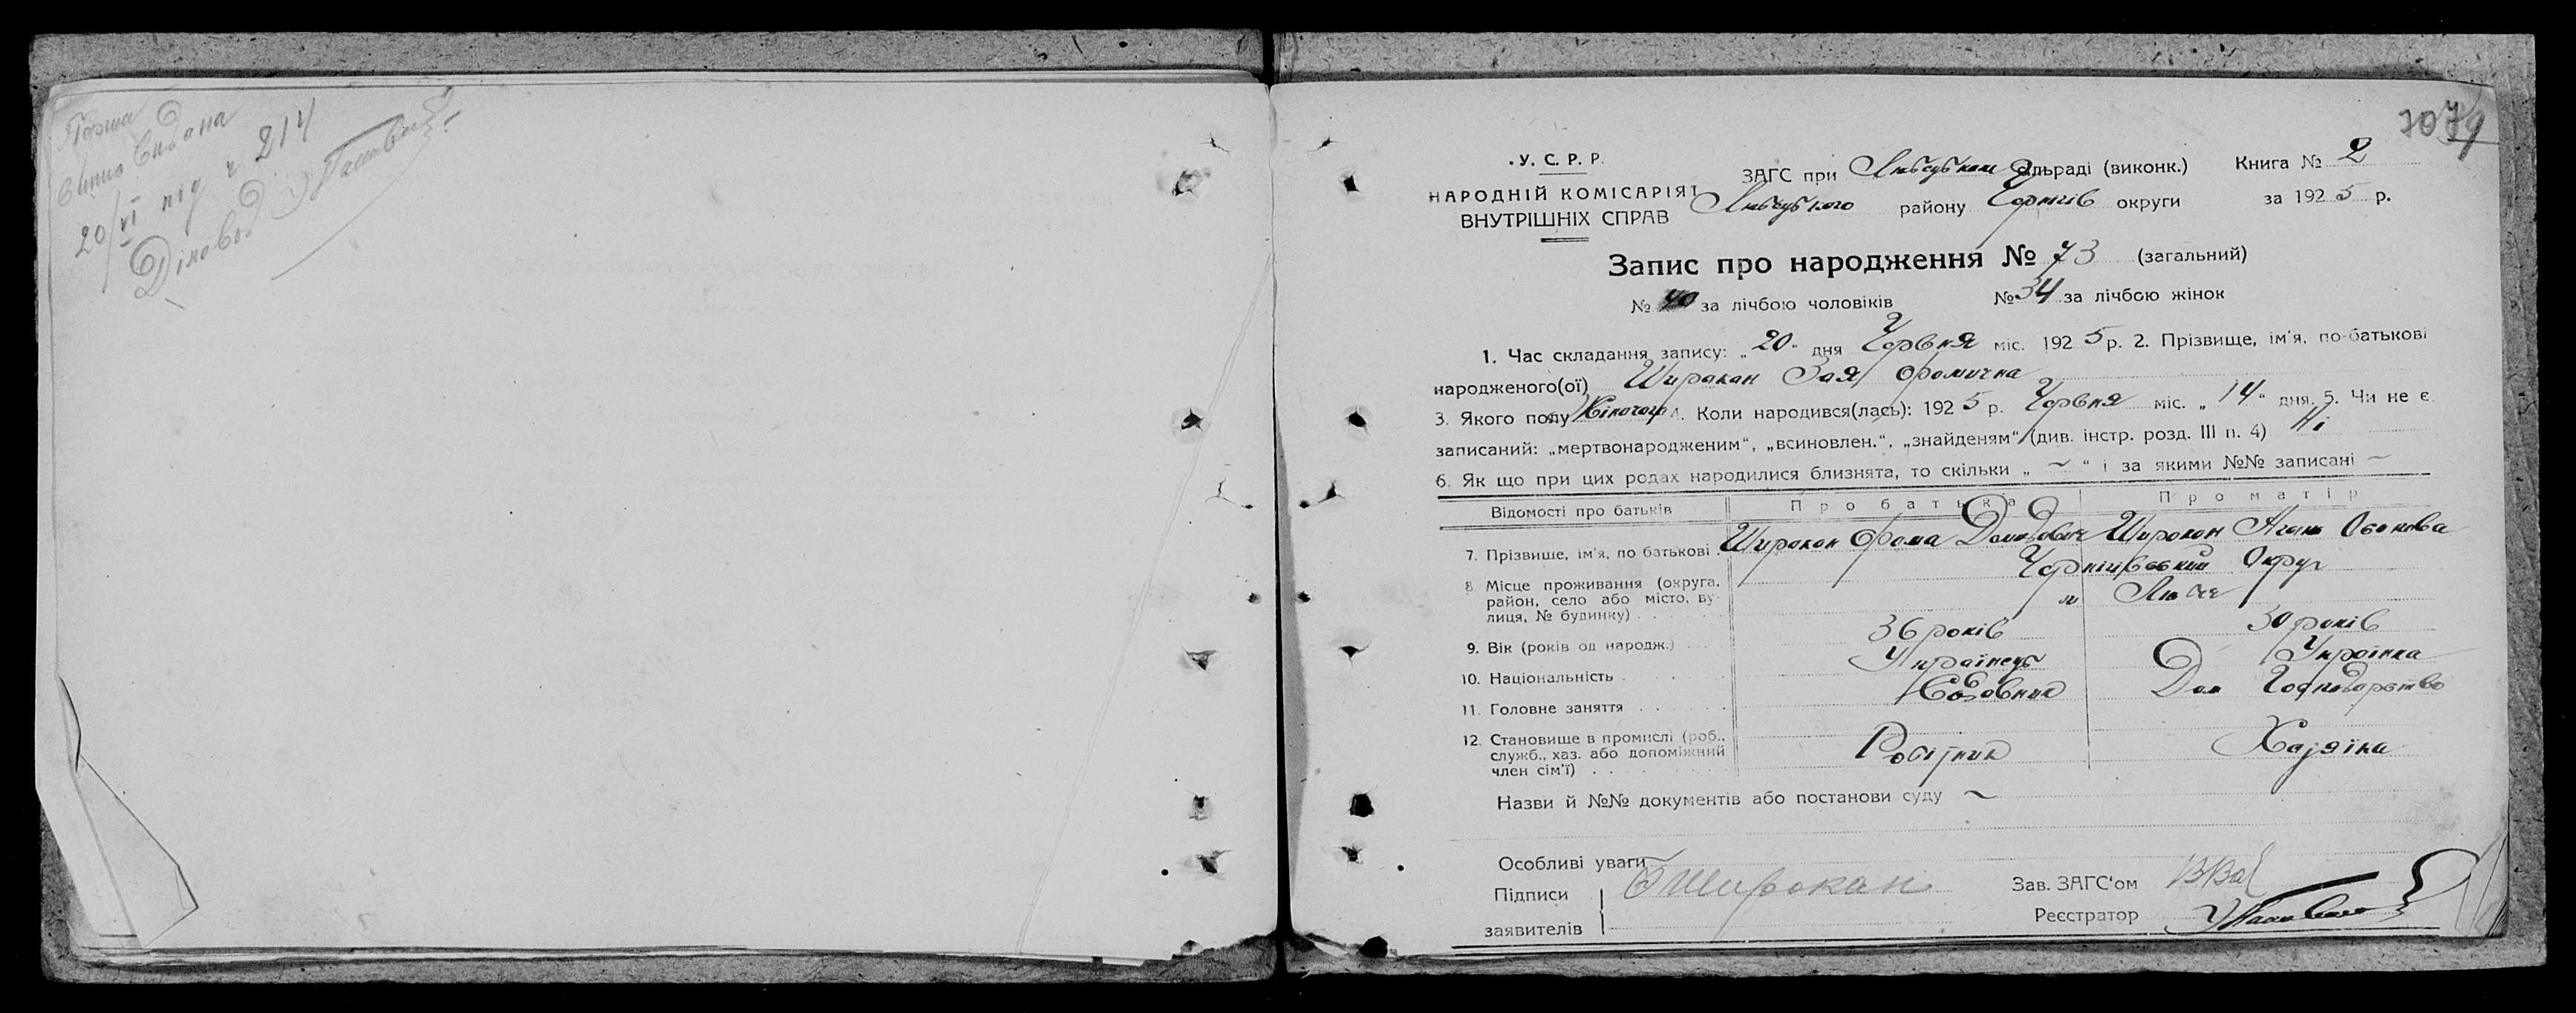 20/VI під ч 214
Діловод
1079
У. С. Р. Р.
НАРОДНІЙ КОМІСАРІЯТ
ВНУТРІШНІХ СПРАВ
ЗАГС при Любецьком сільраді (виконк.) Книга № 2
Любецького району Чернігів округи за 1925 р.
Запис про народження № 73 (загальний)
№ 40 за лічбою чоловіків № 34 за лічбою жінок
1. Час складання запису: „20“ дня Червня міс. 1925 р. 2. Прізвище, ім'я, по-батькові
народженого(ої) Широкан Зоя Фомична
3. Якого полу Жіночого 4. Коли народився(лась): 1925 р. Червня міс. „14“ дня. 5. Чи не є
записаний: „мертвонародженим“, „всиновлен.“, „знайденям“ (див. інстр. розд. III п. 4) Ні
6. Як що при цих родах народилися близнята, то скільки „ ~ “ і за якими №№ записані ~
Відомості про батьків Про батька Про матір
7. Прізвище, ім'я, по батькові Широкан Фома Демидович Широкан
8. Місце проживання (округа, район, село або місто, вулиця, № будинку) Чернігівський Округ
м Любеч
9. Вік (років од народж.) 36 років 30 років
10. Національність Українець Українка
11. Головне заняття Садовник Дом Господарство
12. Становище в промислі (роб., служб., хаз. або допоміжний член сім'ї) Робітник Хазяїка
Назви й №№ документів або постанови суду ~
Особливі уваги
Підписи Ф Широкан Зав. ЗАГС'ом
заявителів Реєстратор